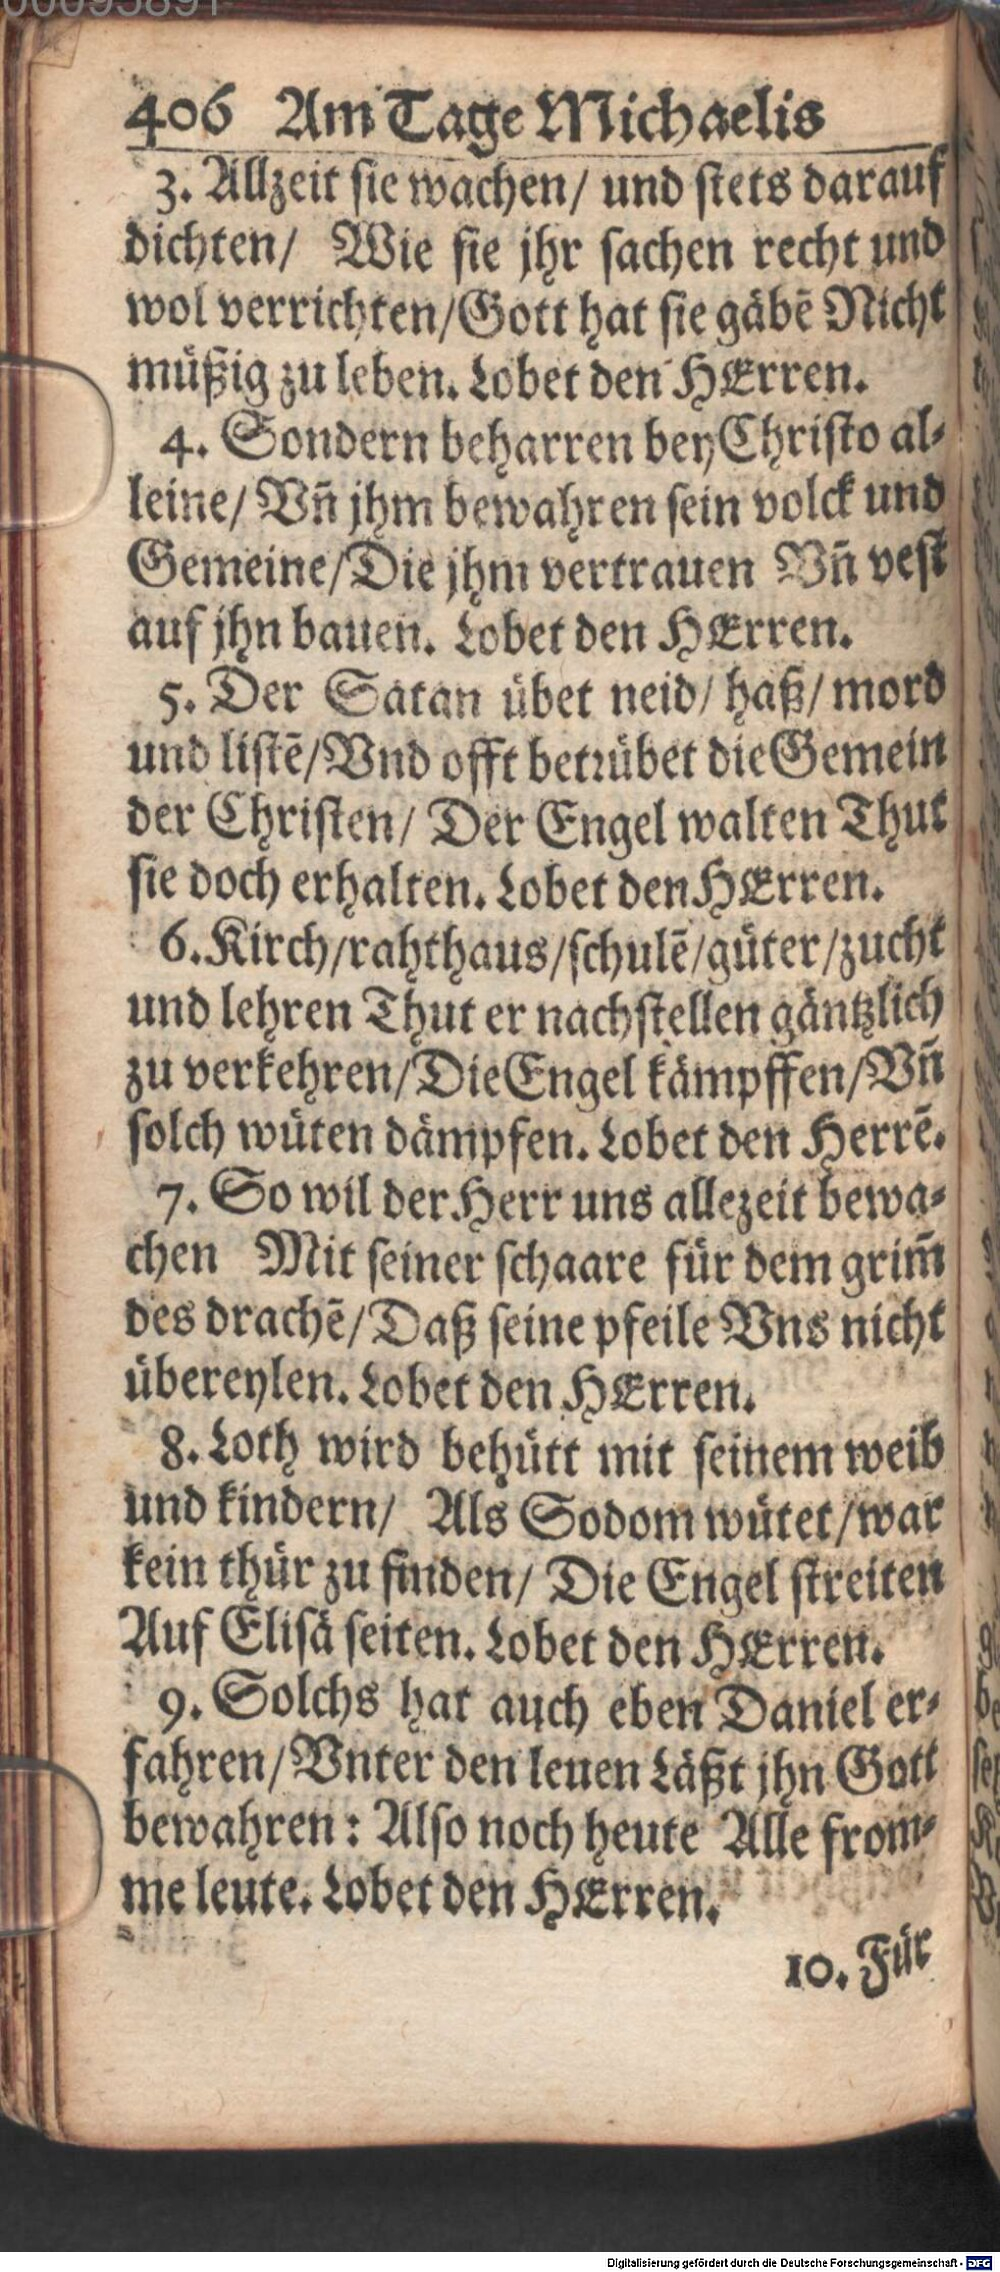 00095891
406 Am Tage Michaelis
3. Allzeit sie wachen/ und stets darauf
dichten/ Wie sie jhr sachen recht und
wol verrichten/Gott hat sie gäbē Nicht
müßig zu leben. Lobet den HErren.
4. Sondern beharren bey Christo al-
leine/ Vn̄ jhm bewahren sein volck und
Gemeine/Die jhm vertrauen Vn̄ vest
auf jhn bauen. Lobet den HErren.
5. Der Satan übet neid/ haß/ mord
und listē/Vnd offt betrübet die Gemein
der Christen/ Der Engel walten Thut
sie doch erhalten. Lobet den HErren.
6. Kirch/rahthaus/schulē/güter/zucht
und lehren Thut er nachstellen gäntzlich
zu verkehren/Die Engel kämpffen/Vn̄
solch wüten dämpfen. Lobet den Herrē.
7. So wil der Herr uns allezeit bewa-
chen Mit seiner schaare für dem grim̄
des drachē/Daß seine pfeile Vns nicht
übereylen. Lobet den HErren.
8. Loth wird behütt mit seinem weib
und kindern/ Als Sodom wütet/war
kein thür zu finden/ Die Engel streiten
Auf Elisä seiten. Lobet den HErren.
9. Solchs hat auch eben Daniel er-
fahren/Vnter den leuen Läßt jhn Gott
bewahren: Also noch heute Alle from-
me leute. Lobet den HErren.
10. Für
Digitalisierung gefördert durch die Deutsche Forschungsgemeinschaft - DFG